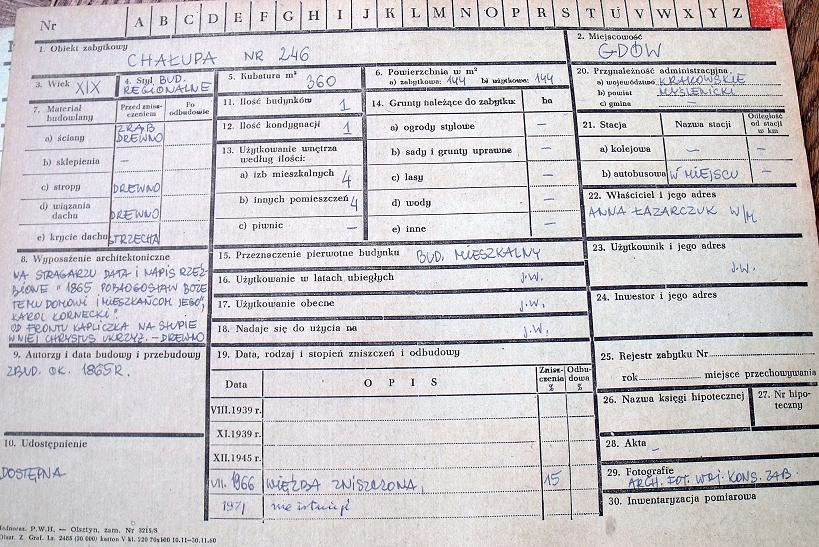 Nr A B C D E F G H I J K L M N O P R S T U V W X Y Z
1. Obiekt zabytkowy
CHAŁUPA NR 246
2. Miejscowość
GDÓW
3. Wiek XIX
4. Styl BUD. REGIONALNE
5. Kubatura m³ 360
6. Powierzchnia w m²
a) zabytkowa: 144 b) użytkowa: 144
20. Przynależność administracyjna
a) województwo KRAKOWSKIE
b) powiat MYŚLENICKI
c) gmina —
7. Materiał budowlany
Przed zniszczeniem
Po odbudowie
a) ściany ZRĄB DREWNO
b) sklepienia —
c) stropy DREWNO
d) wiązania dachu DREWNO
e) krycie dachu STRZECHA
11. Ilość budynków 1
12. Ilość kondygnacji 1
13. Użytkowanie wnętrza według ilości:
a) izb mieszkalnych 4
b) innych pomieszczeń 4
c) piwnic —
14. Grunty należące do zabytku: ha
a) ogrody stylowe —
b) sady i grunty uprawne —
c) lasy —
d) wody —
e) inne —
21. Stacja Nazwa stacji Odległość od stacji w km
a) kolejowa — —
b) autobusowa W MIEJSCU —
22. Właściciel i jego adres
ANNA ŁAZARCZUK W/M
8. Wyposażenie architektoniczne
NA STRAGARZU DATA I NAPIS RZEŹ-
BIONE " 1865 POBŁOGOSŁAW BOŻE
TEMU DOMOWI I MIESZKAŃCOM JEGO",
KAROL KORNECKI".
OD FRONTU KAPLICZKA NA SŁUPIE
W NIEJ CHRYSTUS UKRZYŻ. – DREWNO
15. Przeznaczenie pierwotne budynku BUD. MIESZKALNY
16. Użytkowanie w latach ubiegłych j.w.
17. Użytkowanie obecne j.w.
18. Nadaje się do użycia na j.w.
23. Użytkownik i jego adres
j.w.
24. Inwestor i jego adres
9. Autorzy i data budowy i przebudowy
ZBUD. OK. 1865R.
19. Data, rodzaj i stopień zniszczeń i odbudowy
Data OPIS Zniszczenia % Odbudowa %
VIII.1939 r.
XI.1939 r.
XII.1945 r.
VII. 1966 WIĘŹBA ZNISZCZONA, 15
1971 nie istnieje
25. Rejestr zabytku Nr
rok miejsce przechowywania
26. Nazwa księgi hipotecznej
27. Nr hipoteczny
28. Akta —
10. Udostępnienie
DOSTĘPNA
29. Fotografie
ARCH. FOT. WOJ. KONS. ZAB.
30. Inwentaryzacja pomiarowa
P.W.H. — Olsztyn, zam. Nr 3215/S
Olszt. Z. Graf. Lz. 2485 (30 000) karton V kl. 220 70x100 10.11—30.11.60